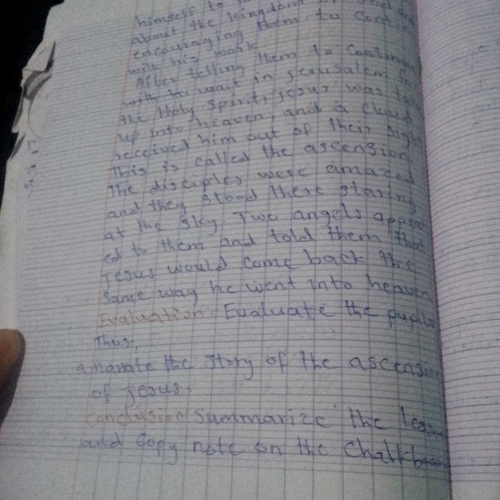 himself to
about the kingdom of God
encouraging them to cont
with his work
After telling them to continue
with to wait in Jerusalem for
the Holy Spirit, Jesus was
up into heaven, and a cloud
received him out of their sight
This is called the ascension
The disciples were amazed
and they stood there staring
at the sky. Two angels appear
ed to them and told them that
Jesus would come back the
same way he went into heaven
Evaluation: Evaluate the pupils
Thus,
a. narate the story of the ascension
of jesus.
Conclusion: Summarize the lesson
and copy note on the Chalkboard